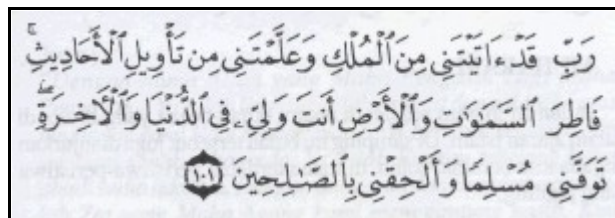 رَبِّ قَدْ ءَاتَيْتَنِى مِنَ ٱلْمُلْكِ وَعَلَّمْتَنِى مِن تَأْوِيلِ ٱلْأَحَادِيثِ ۚ
فَاطِرَ ٱلسَّمَـٰوَٰتِ وَٱلْأَرْضِ أَنتَ وَلِىِّۦ فِى ٱلدُّنْيَا وَٱلْـَٔاخِرَةِ ۖ
تَوَفَّنِى مُسْلِمًا وَأَلْحِقْنِى بِٱلصَّـٰلِحِينَ ١٠١